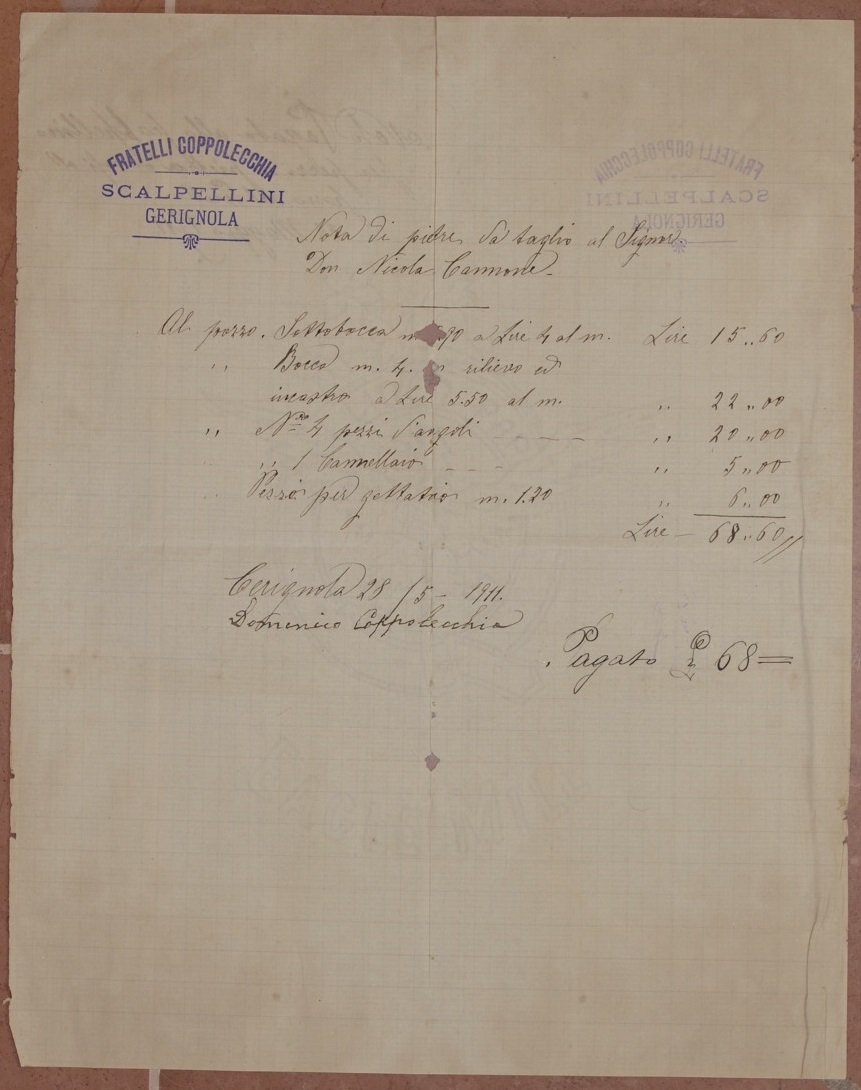 FRATELLI COPPOLECCHIA
SCALPELLINI
GERIGNOLA
Nota di pietre da taglio al Signor
Don Nicola Cannone
Al pozzo. Sottobocca m. 90 a Lire 4 al m. Lire 15,,60
,, Bocca m. 4. rilievo ed
incastro a Lire 5.50 al m. ,, 22,,00
,, N.ro 4 pezzi d'angoli - - - - ,, 20,,00
,, 1 Cannellaio - - - ,, 5,,00
Pezzo per m. 1.20 ,, 6,,00
Lire - 68,,60
Cerignola 28/5 - 1911.
Domenico Coppolecchia
Pagato £ 68=